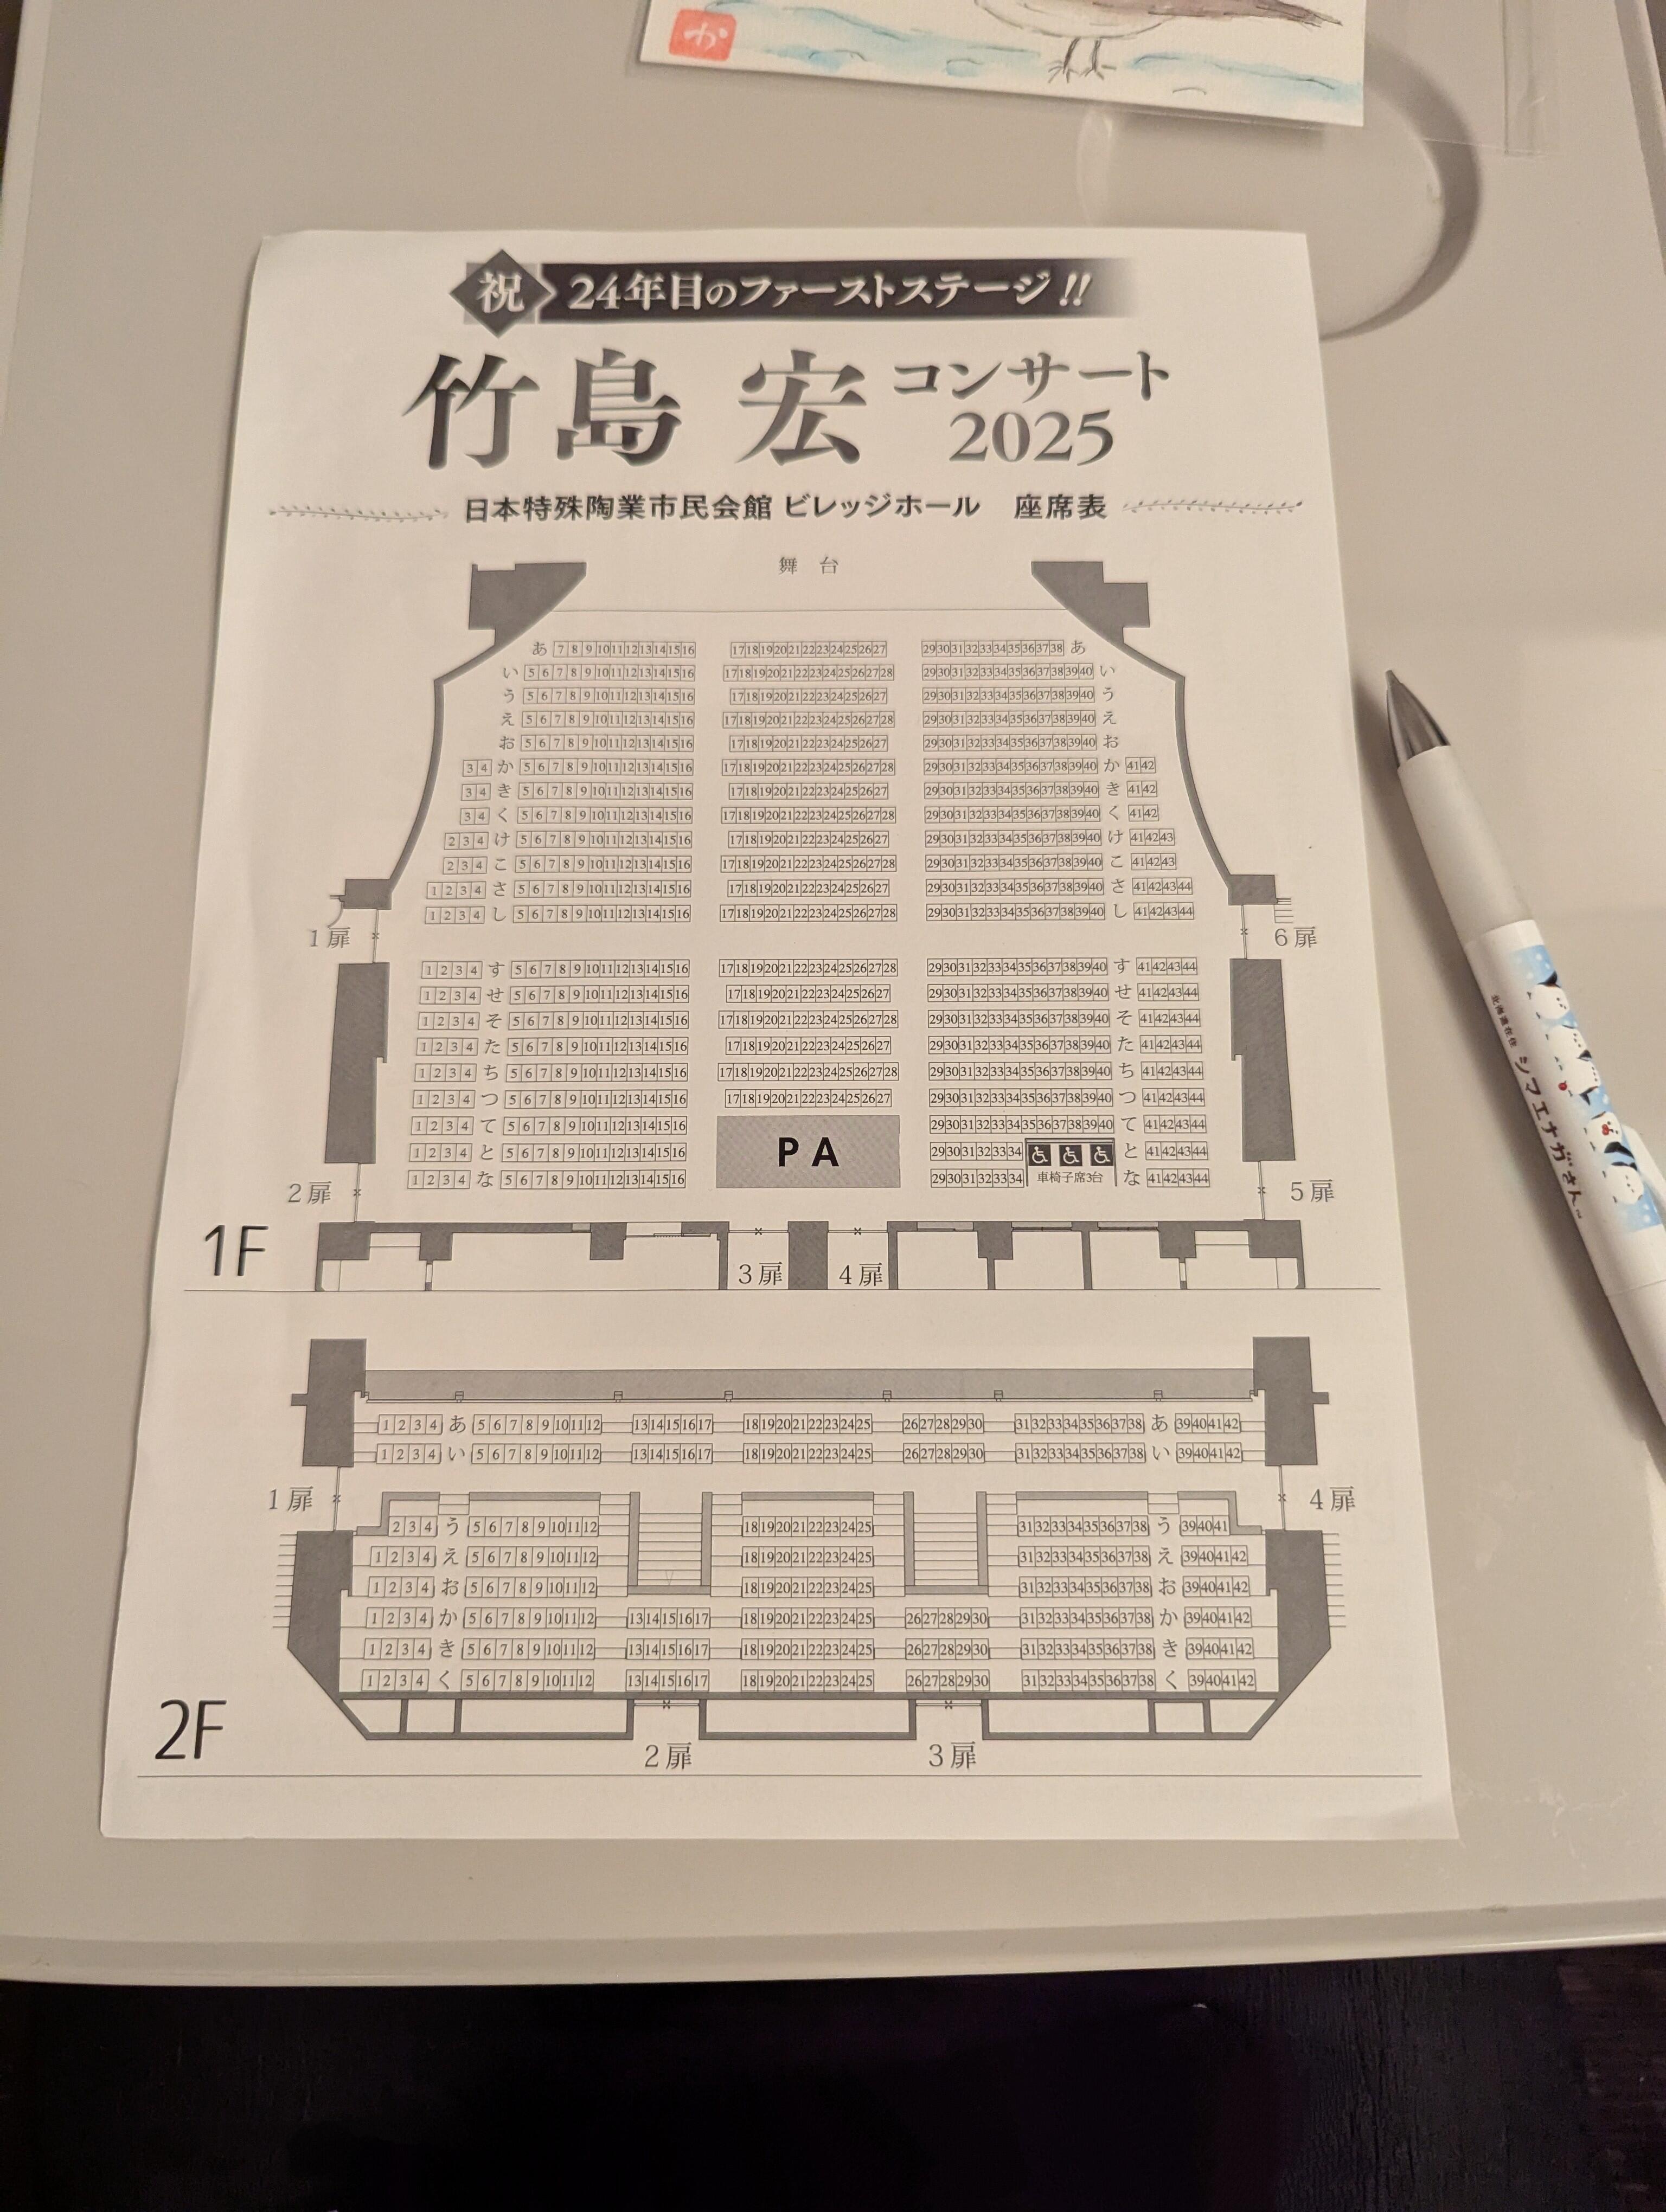 か
祝 24年目のファーストステージ!!
竹島 宏 コンサート
2025
日本特殊陶業市民会館 ビレッジホール 座席表
舞 台
あ 7 8 9 10 11 12 13 14 15 16 17 18 19 20 21 22 23 24 25 26 27 29 30 31 32 33 34 35 36 37 38 あ
い 5 6 7 8 9 10 11 12 13 14 15 16 17 18 19 20 21 22 23 24 25 26 27 28 29 30 31 32 33 34 35 36 37 38 39 40 い
う 5 6 7 8 9 10 11 12 13 14 15 16 17 18 19 20 21 22 23 24 25 26 27 29 30 31 32 33 34 35 36 37 38 39 40 う
え 5 6 7 8 9 10 11 12 13 14 15 16 17 18 19 20 21 22 23 24 25 26 27 28 29 30 31 32 33 34 35 36 37 38 39 40 え
お 5 6 7 8 9 10 11 12 13 14 15 16 17 18 19 20 21 22 23 24 25 26 27 29 30 31 32 33 34 35 36 37 38 39 40 お
3 4 か 5 6 7 8 9 10 11 12 13 14 15 16 17 18 19 20 21 22 23 24 25 26 27 28 29 30 31 32 33 34 35 36 37 38 39 40 か 41 42
3 4 き 5 6 7 8 9 10 11 12 13 14 15 16 17 18 19 20 21 22 23 24 25 26 27 29 30 31 32 33 34 35 36 37 38 39 40 き 41 42
3 4 く 5 6 7 8 9 10 11 12 13 14 15 16 17 18 19 20 21 22 23 24 25 26 27 28 29 30 31 32 33 34 35 36 37 38 39 40 く 41 42
2 3 4 け 5 6 7 8 9 10 11 12 13 14 15 16 17 18 19 20 21 22 23 24 25 26 27 29 30 31 32 33 34 35 36 37 38 39 40 け 41 42 43
2 3 4 こ 5 6 7 8 9 10 11 12 13 14 15 16 17 18 19 20 21 22 23 24 25 26 27 28 29 30 31 32 33 34 35 36 37 38 39 40 こ 41 42 43
1 2 3 4 さ 5 6 7 8 9 10 11 12 13 14 15 16 17 18 19 20 21 22 23 24 25 26 27 29 30 31 32 33 34 35 36 37 38 39 40 さ 41 42 43 44
1 2 3 4 し 5 6 7 8 9 10 11 12 13 14 15 16 17 18 19 20 21 22 23 24 25 26 27 28 29 30 31 32 33 34 35 36 37 38 39 40 し 41 42 43 44
1扉 6扉
1 2 3 4 す 5 6 7 8 9 10 11 12 13 14 15 16 17 18 19 20 21 22 23 24 25 26 27 28 29 30 31 32 33 34 35 36 37 38 39 40 す 41 42 43 44
1 2 3 4 せ 5 6 7 8 9 10 11 12 13 14 15 16 17 18 19 20 21 22 23 24 25 26 27 29 30 31 32 33 34 35 36 37 38 39 40 せ 41 42 43 44
1 2 3 4 そ 5 6 7 8 9 10 11 12 13 14 15 16 17 18 19 20 21 22 23 24 25 26 27 28 29 30 31 32 33 34 35 36 37 38 39 40 そ 41 42 43 44
1 2 3 4 た 5 6 7 8 9 10 11 12 13 14 15 16 17 18 19 20 21 22 23 24 25 26 27 29 30 31 32 33 34 35 36 37 38 39 40 た 41 42 43 44
1 2 3 4 ち 5 6 7 8 9 10 11 12 13 14 15 16 17 18 19 20 21 22 23 24 25 26 27 28 29 30 31 32 33 34 35 36 37 38 39 40 ち 41 42 43 44
1 2 3 4 つ 5 6 7 8 9 10 11 12 13 14 15 16 17 18 19 20 21 22 23 24 25 26 27 29 30 31 32 33 34 35 36 37 38 39 40 つ 41 42 43 44
1 2 3 4 て 5 6 7 8 9 10 11 12 13 14 15 16 29 30 31 32 33 34 35 36 37 38 39 40 て 41 42 43 44
1 2 3 4 と 5 6 7 8 9 10 11 12 13 14 15 16 PA 29 30 31 32 33 34 と 41 42 43 44
1 2 3 4 な 5 6 7 8 9 10 11 12 13 14 15 16 29 30 31 32 33 34 車椅子席3台 な 41 42 43 44
2扉 5扉
1F
3扉 4扉
1 2 3 4 あ 5 6 7 8 9 10 11 12 13 14 15 16 17 18 19 20 21 22 23 24 25 26 27 28 29 30 31 32 33 34 35 36 37 38 あ 39 40 41 42
1 2 3 4 い 5 6 7 8 9 10 11 12 13 14 15 16 17 18 19 20 21 22 23 24 25 26 27 28 29 30 31 32 33 34 35 36 37 38 い 39 40 41 42
1扉 4扉
2 3 4 う 5 6 7 8 9 10 11 12 18 19 20 21 22 23 24 25 31 32 33 34 35 36 37 38 う 39 40 41
1 2 3 4 え 5 6 7 8 9 10 11 12 18 19 20 21 22 23 24 25 31 32 33 34 35 36 37 38 え 39 40 41 42
1 2 3 4 お 5 6 7 8 9 10 11 12 18 19 20 21 22 23 24 25 31 32 33 34 35 36 37 38 お 39 40 41 42
1 2 3 4 か 5 6 7 8 9 10 11 12 13 14 15 16 17 18 19 20 21 22 23 24 25 26 27 28 29 30 31 32 33 34 35 36 37 38 か 39 40 41 42
1 2 3 4 き 5 6 7 8 9 10 11 12 13 14 15 16 17 18 19 20 21 22 23 24 25 26 27 28 29 30 31 32 33 34 35 36 37 38 き 39 40 41 42
1 2 3 4 く 5 6 7 8 9 10 11 12 13 14 15 16 17 18 19 20 21 22 23 24 25 26 27 28 29 30 31 32 33 34 35 36 37 38 く 39 40 41 42
2F
2扉 3扉
北海道在住
シマエナガさん